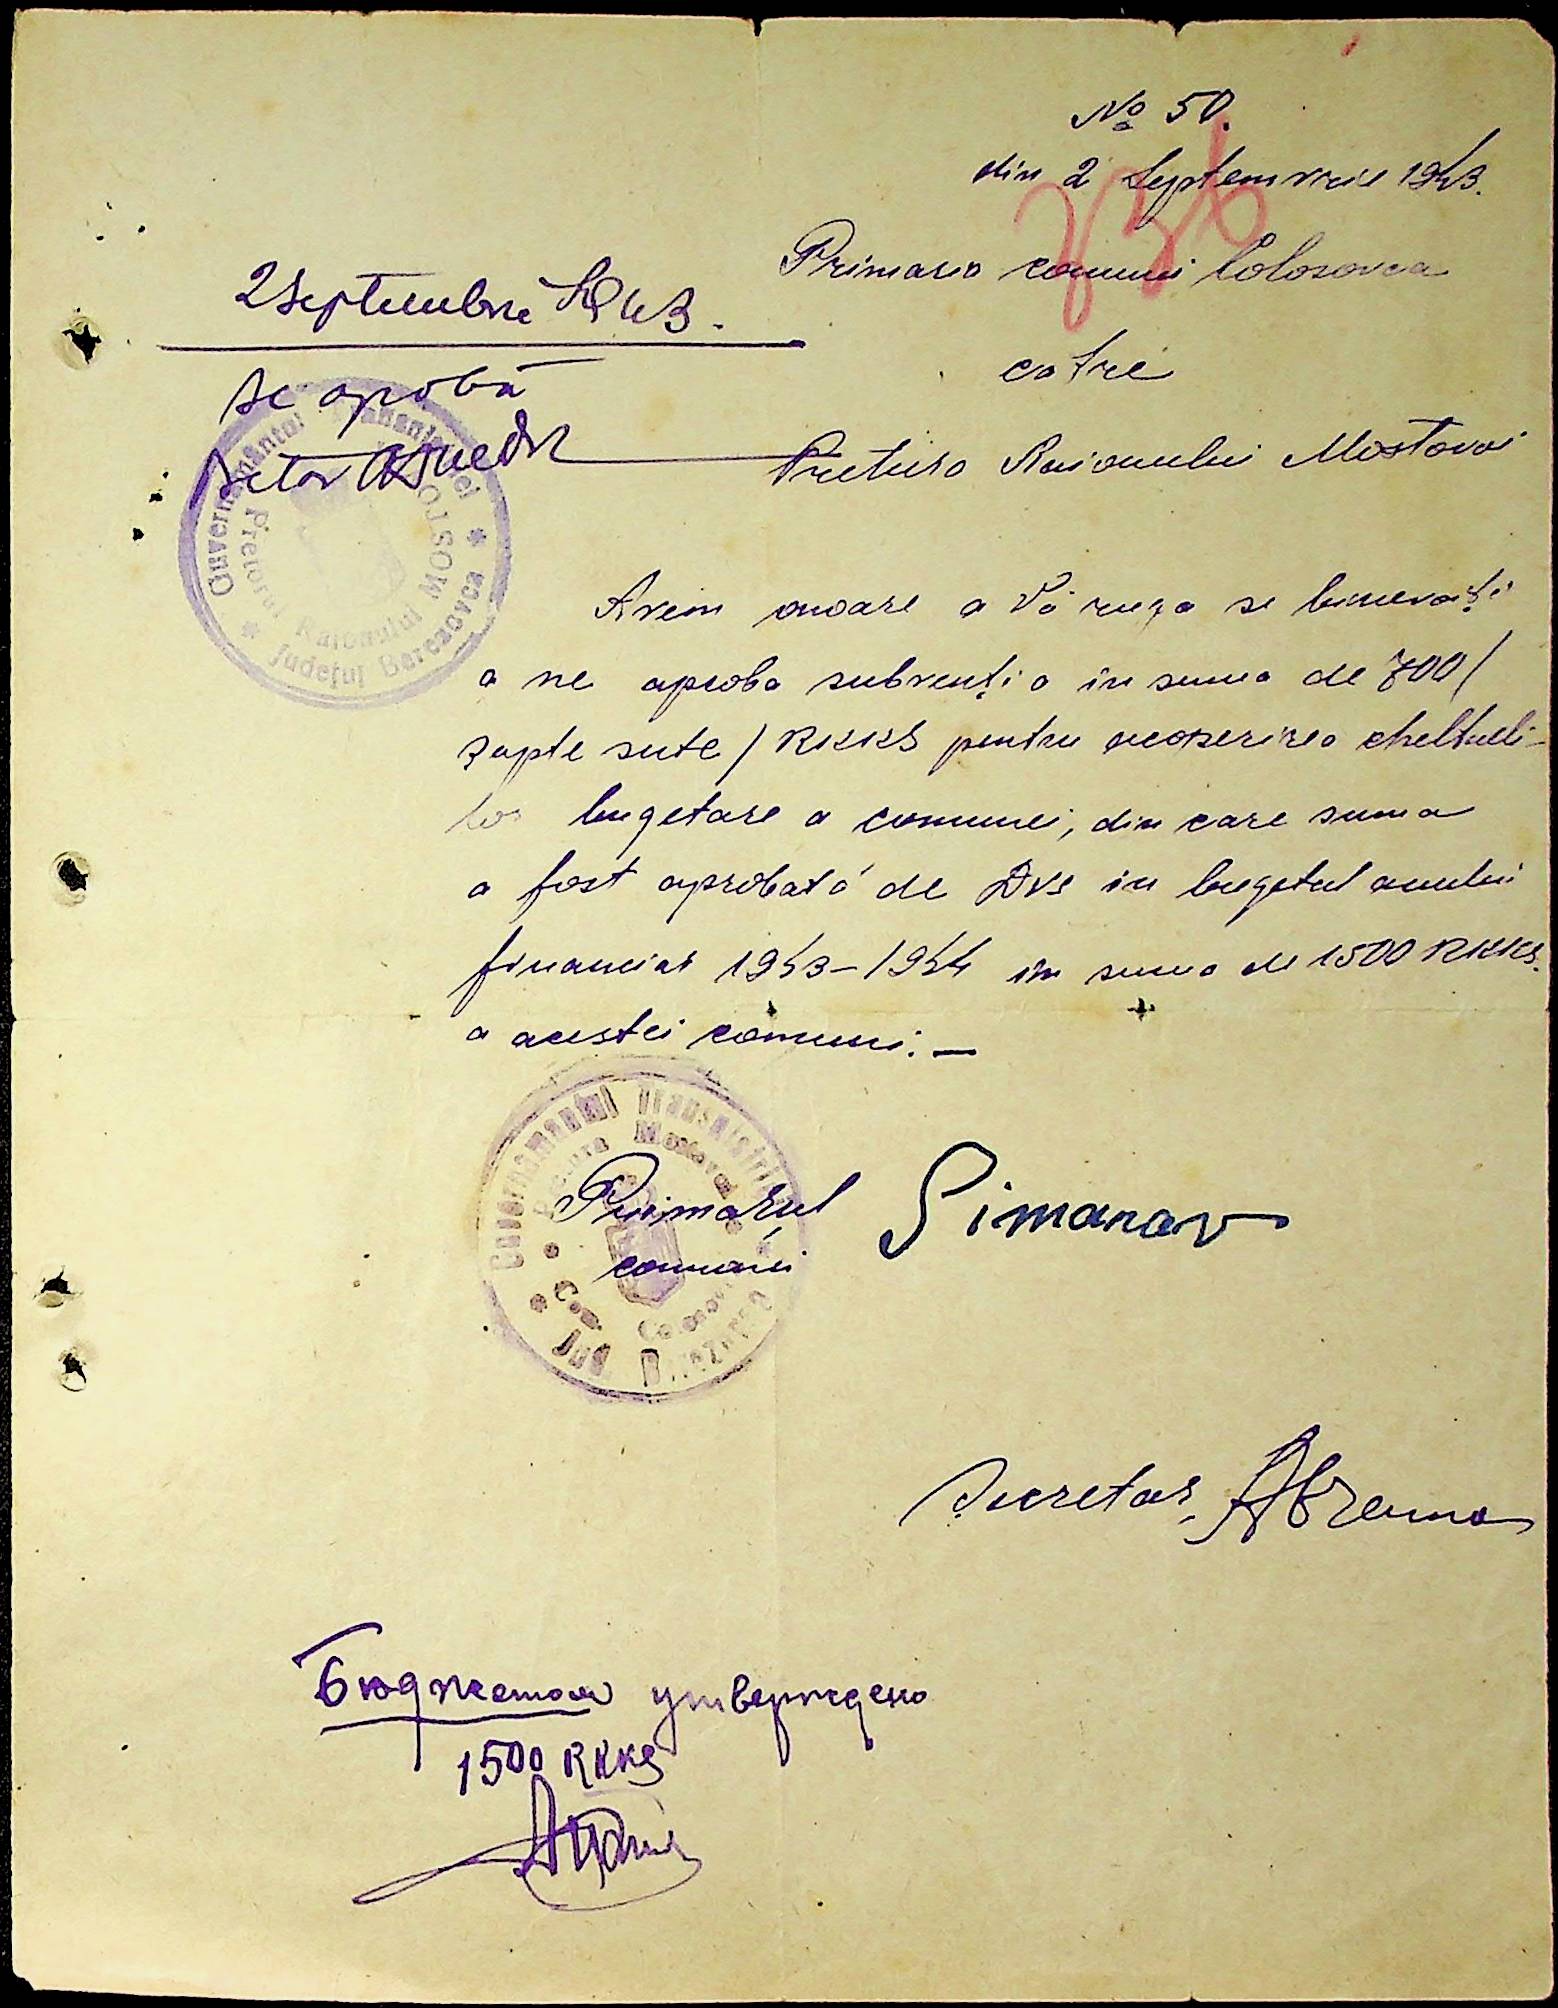 № 50.
din 2 Septemvrie 1943.
Primaria comunei Colosovca
catre
Pretura Raionului Mostovoi
2 Septembrie 1943.
se aprobă
Guvernământul Transnistriei
Pretorul Raionului MOSTOVOI
Județul Berezovca
Avem onoare a Vă ruga se binevoiți
a ne aproba subvenția in suma de 700 /
șapte sute / RKKS pentru acoperirea cheltueli-
lor bugetare a comunei, din care suma
a fost aprobată de Dvs in bugetul anului
financiar 1943-1944 in suma de 1500 RKKS.
a acestei comuni. —
Guvernamantul Transnistriei
Pretura Mostovoi
Com. Colosovca
Jud. Berezovca
Primarul Simanov
comunei
Secretar,
Бюджетом утверждено
1500 RKKS